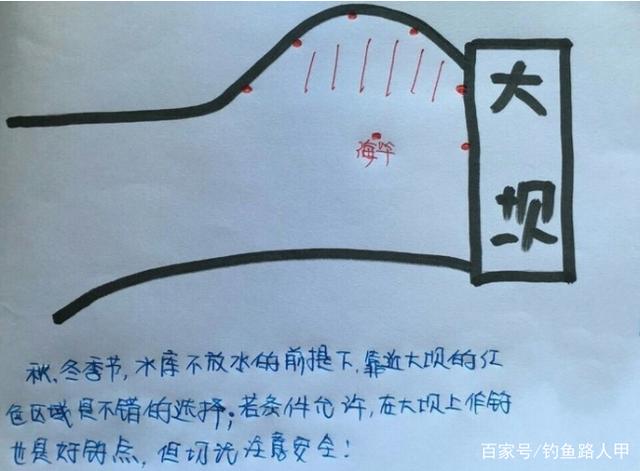 大坝
海竿
秋、冬季节,水库不放水的前提下,靠近大坝的红
色区域是不错的选择;若条件允许,在大坝上作钓
也是好钓点,但切记注意安全!
百家号/钓鱼路人甲